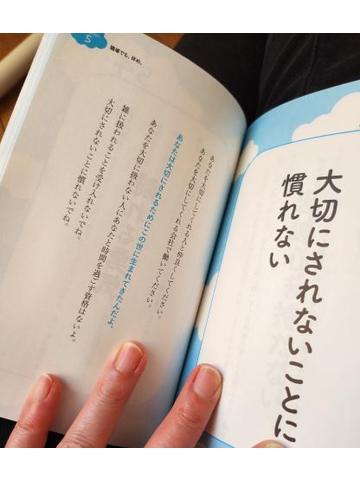 大切にされないことに
慣れない
5
職場でも、辞め。
あなたを大切にしてくれる人と仲良くしてください。
あなたを大切にしてくれる会社で働いてください。
あなたは大切にされるためにこの世に生まれてきたんだよ。
あなたを大切に扱わない人にあなたと時間を過ごす資格はないよ。
雑に扱われることを受け入れないでね。
大切にされないことに慣れないでね。